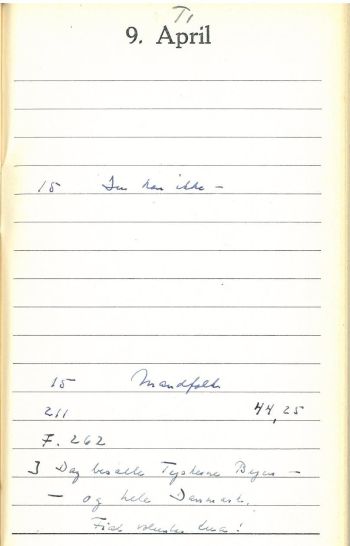 Ti
9. April
15 Den kan ikke -
15 Mandfolk
211 44,25
F. 262
I Dag besatte Tyskerne Byen -
- og hele Danmark.